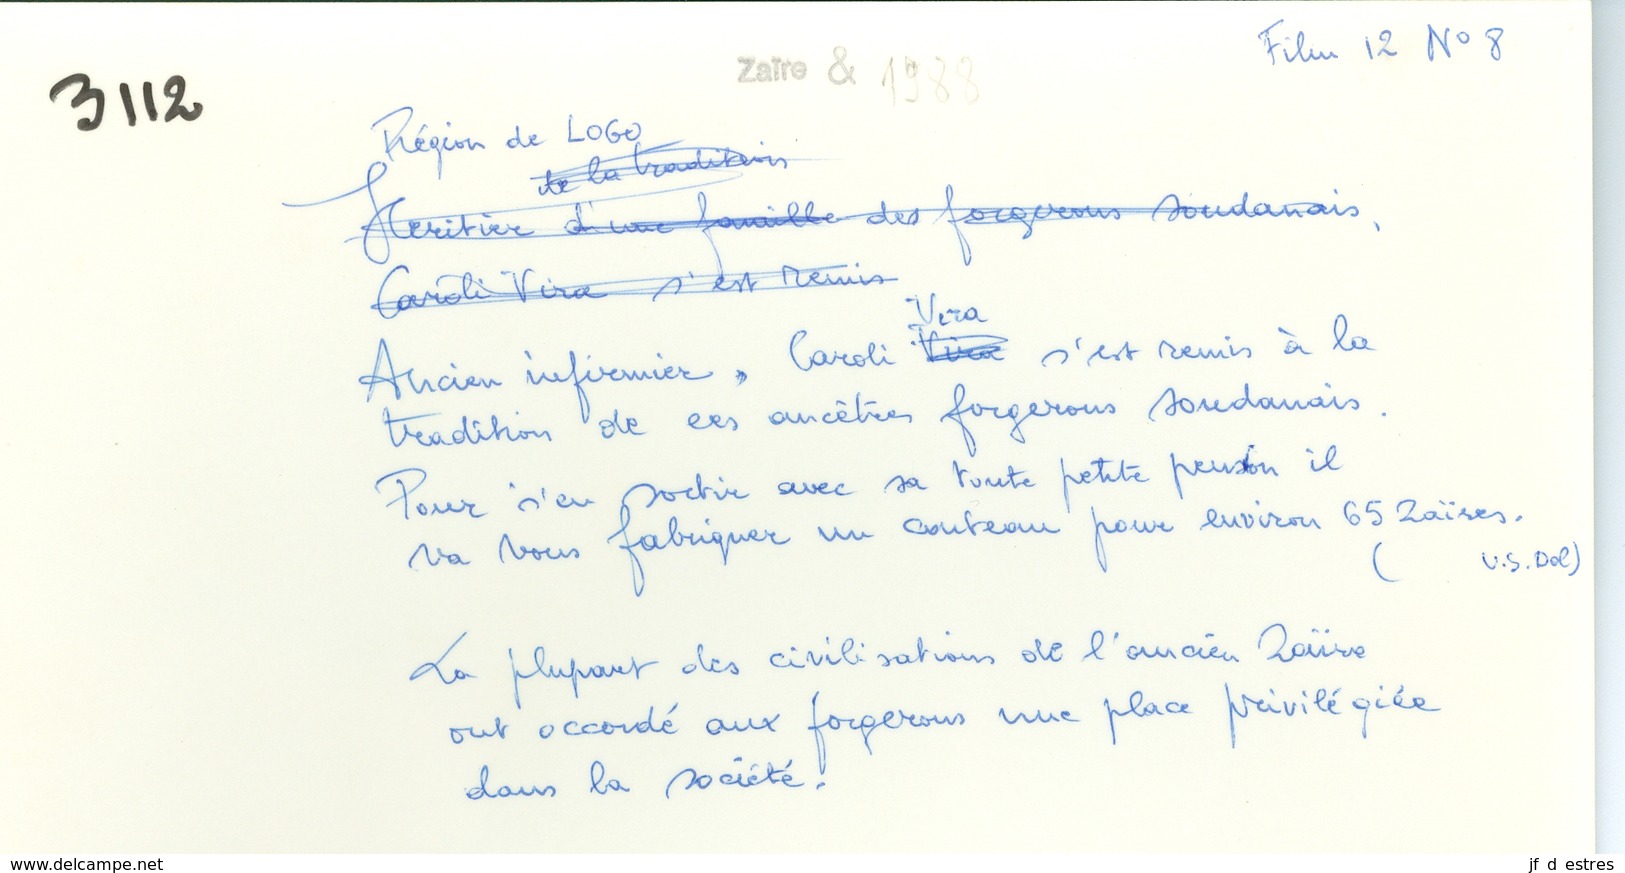 Film 12 No 8
Zaïre & 1988
3112
Région de LOGO
de la tradition
Heritier d'une famille des forgerons soudanais,
Caroli Vira s'est remis
Vera
Ancien infirmier, Caroli Vira s'est remis à la
tradition de ces ancêtres forgerons soudanais.
Pour s'en sortir avec sa toute petite pension il
va vous fabriquer un couteau pour environ 65 Zaïres.
( U.S. Dol)
La plupart des civilisations de l'ancien Zaïre
ont accordé aux forgerons une place privilégiée
dans la société.
www.delcampe.net
jf d estres